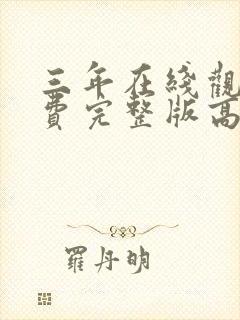 三年在綫觀
費完整版高
羅丹明